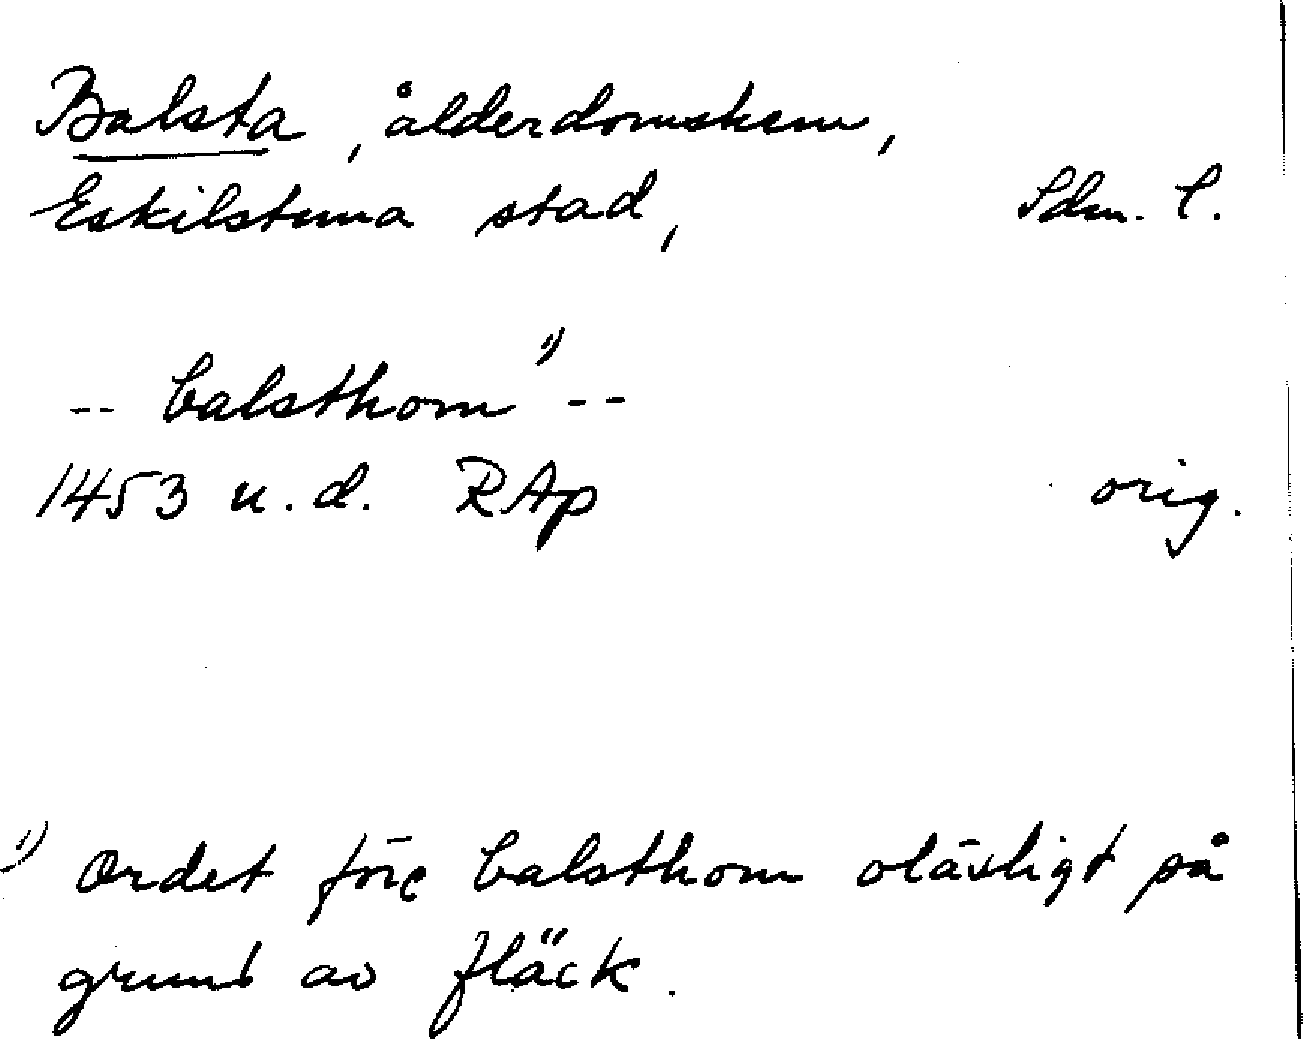 Balsta, ålderdomshem,
Eskilstuna stad, Sdm. l.
-- balsthom 1) --
1453 u.d. RAp orig.
1) Ordet före balsthom oläsligt på
grund av fläck.